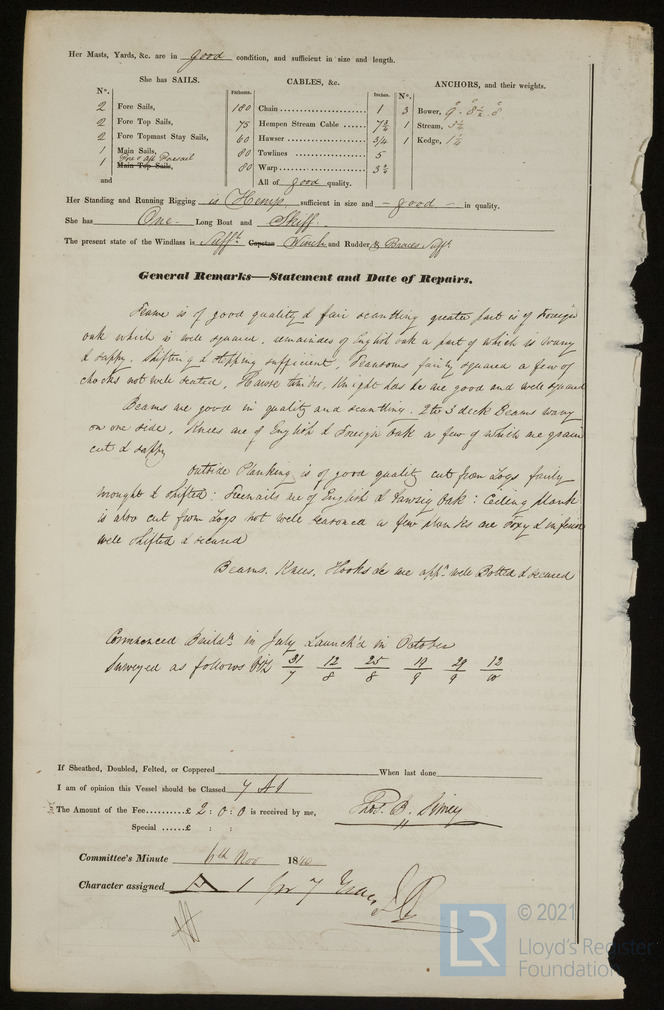 Her Masts, Yards, &c. are in good condition, and sufficient in size and length.
She has SAILS. CABLES, &c. ANCHORS, and their weights.
N°. Fathoms. Inches. N°.
2 Fore Sails, 180 Chain 1 3 Bower,
2 Fore Top Sails, 75 Hempen Stream Cable 7¾ 1 Stream,
2 Fore Topmast Stay Sails, 60 Hawser 3/4 1 Kedge,
1 Main Sails, 80 Towlines 5
1 Fore & Aft Foresail Main Top Sails, 80 Warp 3½
and All of good quality.
Her Standing and Running Rigging is Hemp sufficient in size and - good - in quality.
She has One Long Boat and Skiff.
The present state of the Windlass is Sufft. Capstan Winch and Rudder & Braces Sufft.
General Remarks—Statement and Date of Repairs.
Frame is of good quality & fair scantling greater part is of Foreign
oak which is well squared, remainder of English oak a part of which is wany
& sappy. Shifting & stopping sufficient, Transoms fairly squared a few of
chocks not well seated, Hawse timbers, Knightheads &c are good and well squared
Beams are good in quality and scantling. 2 to 3 deck Beams wany
on one side, Knees are of English & Foreign oak a few of which are grain
cut & sappy
Outside Planking is of good quality cut from Logs fairly
wrought & shifted: Treenails are of English & Danzig Oak: Ceiling plank
is also cut from Logs not well seasoned a few planks are Foxy & inferior
well shifted & secured
Beams, Knees, Hooks &c are appy. well Bolted & secured
Commenced Buildg. in July Launch'd in October
Surveyed as follows 31/7 12/8 25/8 29/9 12/10
If Sheathed, Doubled, Felted, or Coppered When last done
I am of opinion this Vessel should be Classed 7 A1
The Amount of the Fee £ 2 : 0 : 0 is received by me,
Special £ : :
Thos. B. Simey
Committee's Minute 6th Nov 1840
Character assigned A 1 for 7 Years
© 2021
LR Lloyd's Register
Foundation